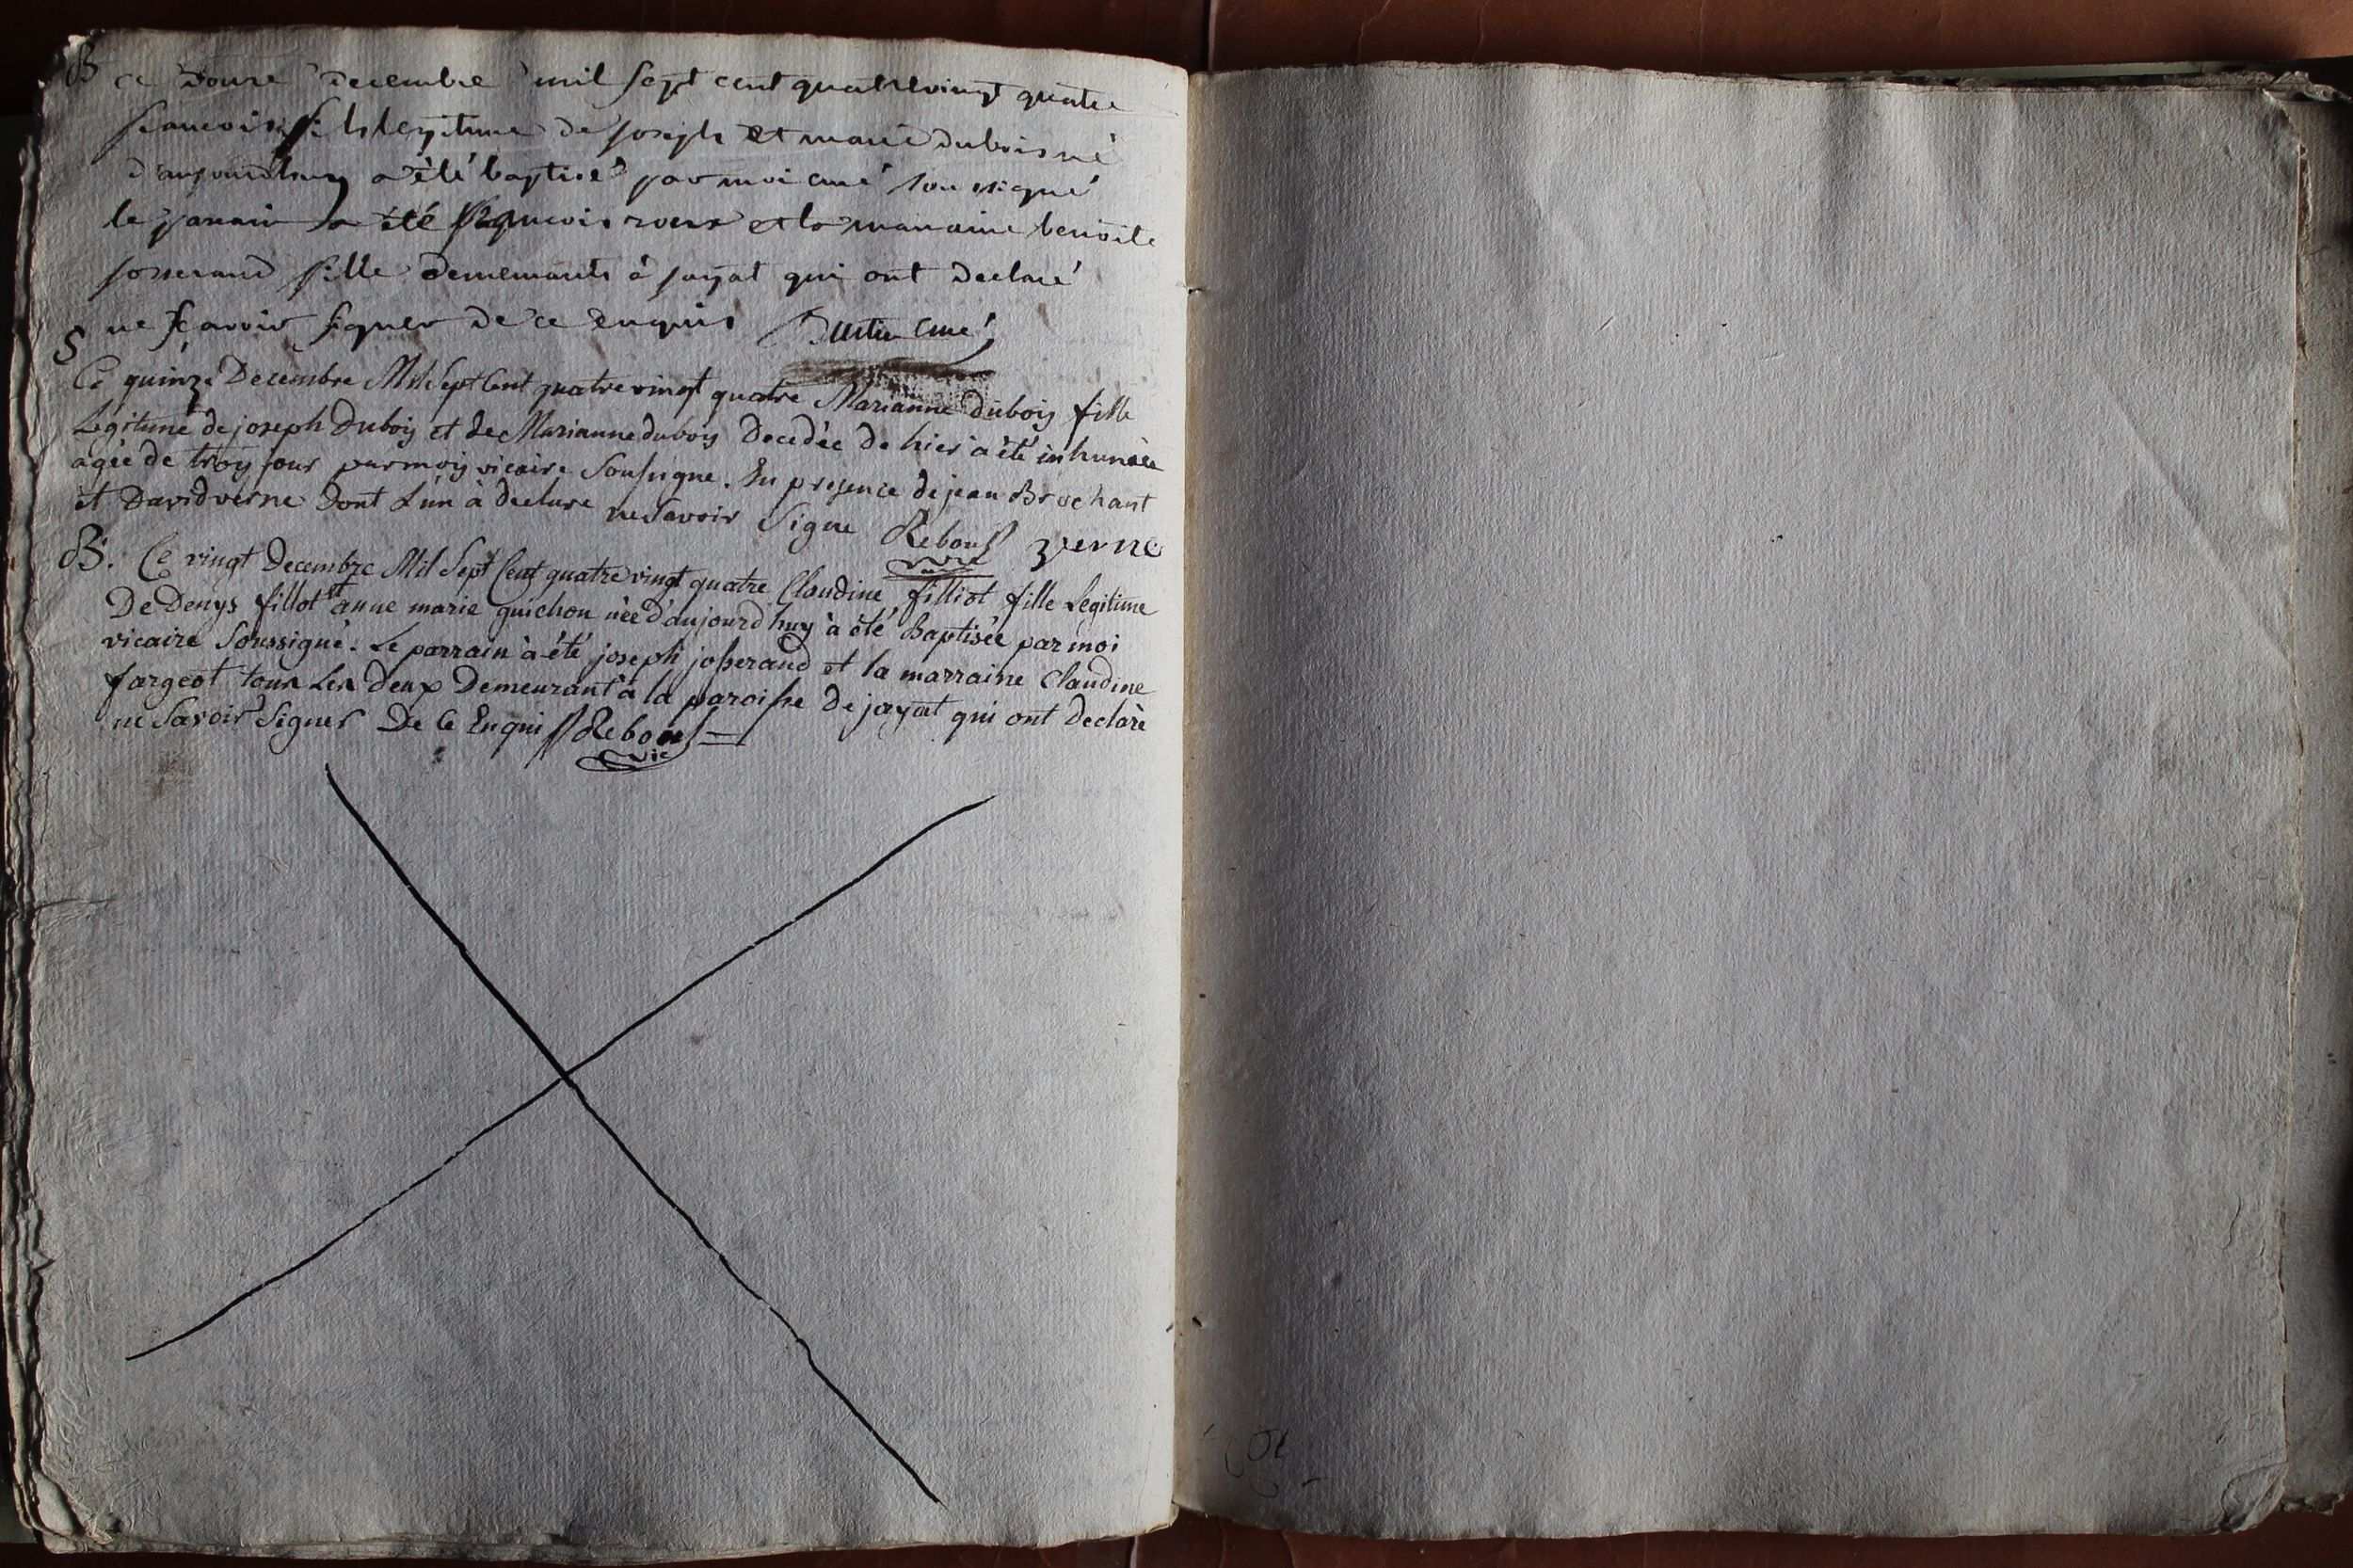 B ce douze decembre mil sept cent quatrevingt quatre
francois fils legitime de joseph et marie dubois né
d'aujourdhuy a été baptisé par moi curé soussigné
le parain a été francois roux et la maraine benoite
josserand fille demeurants à jayat qui ont declaré
ne scavoir signer de ce enquis curé
S
Ce quinze Decembre Mil Sept Cent quatre vingt quatre Marianne dubois fille
Legitime de joseph Dubois et de Marianne dubois Decedée de hier à été inhumée
agée de troy jour par moy vicaire Soussigne. En presence de jean Brochant
et David verne Dont L'un à declare ne Savoir Signe Rebour verne
vic
B. Ce vingt Decembre Mil Sept Cent quatre vingt quatre Claudine filliot fille Legitime
De Denys fillot et anne marie guichon née d'aujourd'huy à été Baptisée par moi
vicaire Soussigné. Le parrain à été joseph josserand et la marraine Claudine
fargeot tous Les deux Demeurant à la paroisse De jayat qui ont declarè
ne Savoir Signer De Ce Enqui Rebour
vic